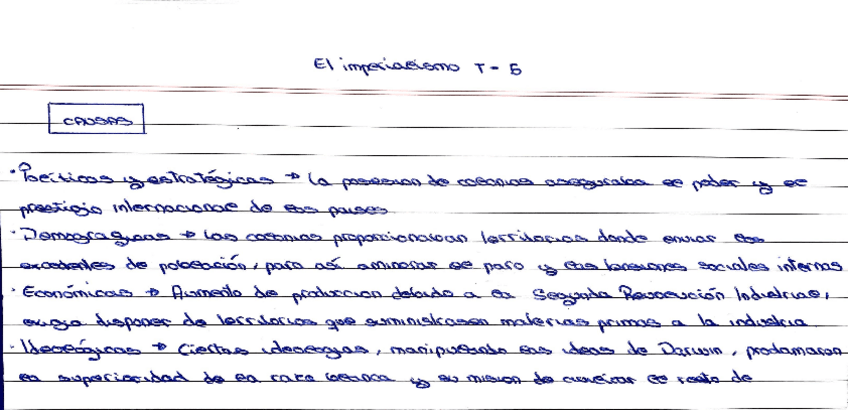 El imperialismo T-5
CAUSAS
· Políticas y estratégicas → La posesion de colonias aseguraba el poder y el
prestigio internacional de los paises
· Demograficas → Las colonias proporcionaban territorios donde enviar los
excedentes de población, para así aminorar el paro y las tensiones sociales internas
· Económicas → Aumento de produccion debido a la Segunda Revolución Industrial,
exigio disponer de territorios que suministrasen materias primas a la industria
· Ideológicas → Ciertas ideologias, manipulando las ideas de Darwin, proclamaron
la superioridad de la raza blanca y su mision de civilizar el resto de